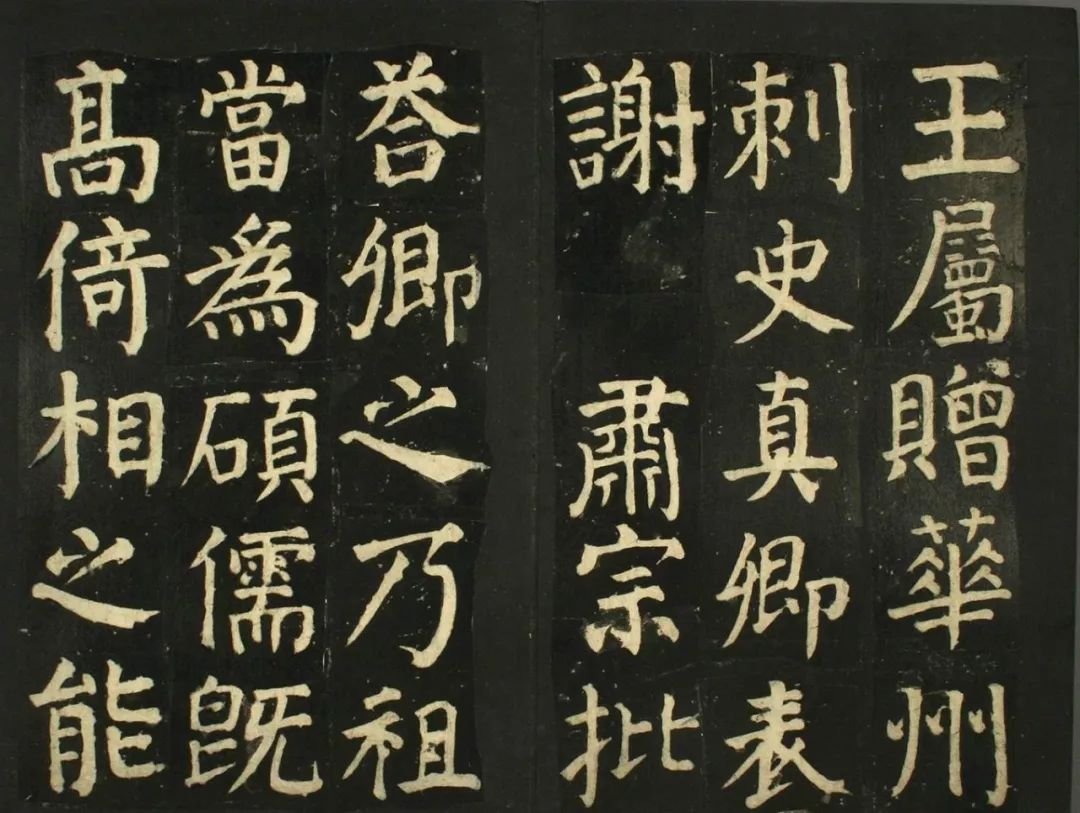 王屬贈華州
刺史真卿表
謝 肅宗批
荅卿之乃祖
當爲碩儒旣
髙倚相之能